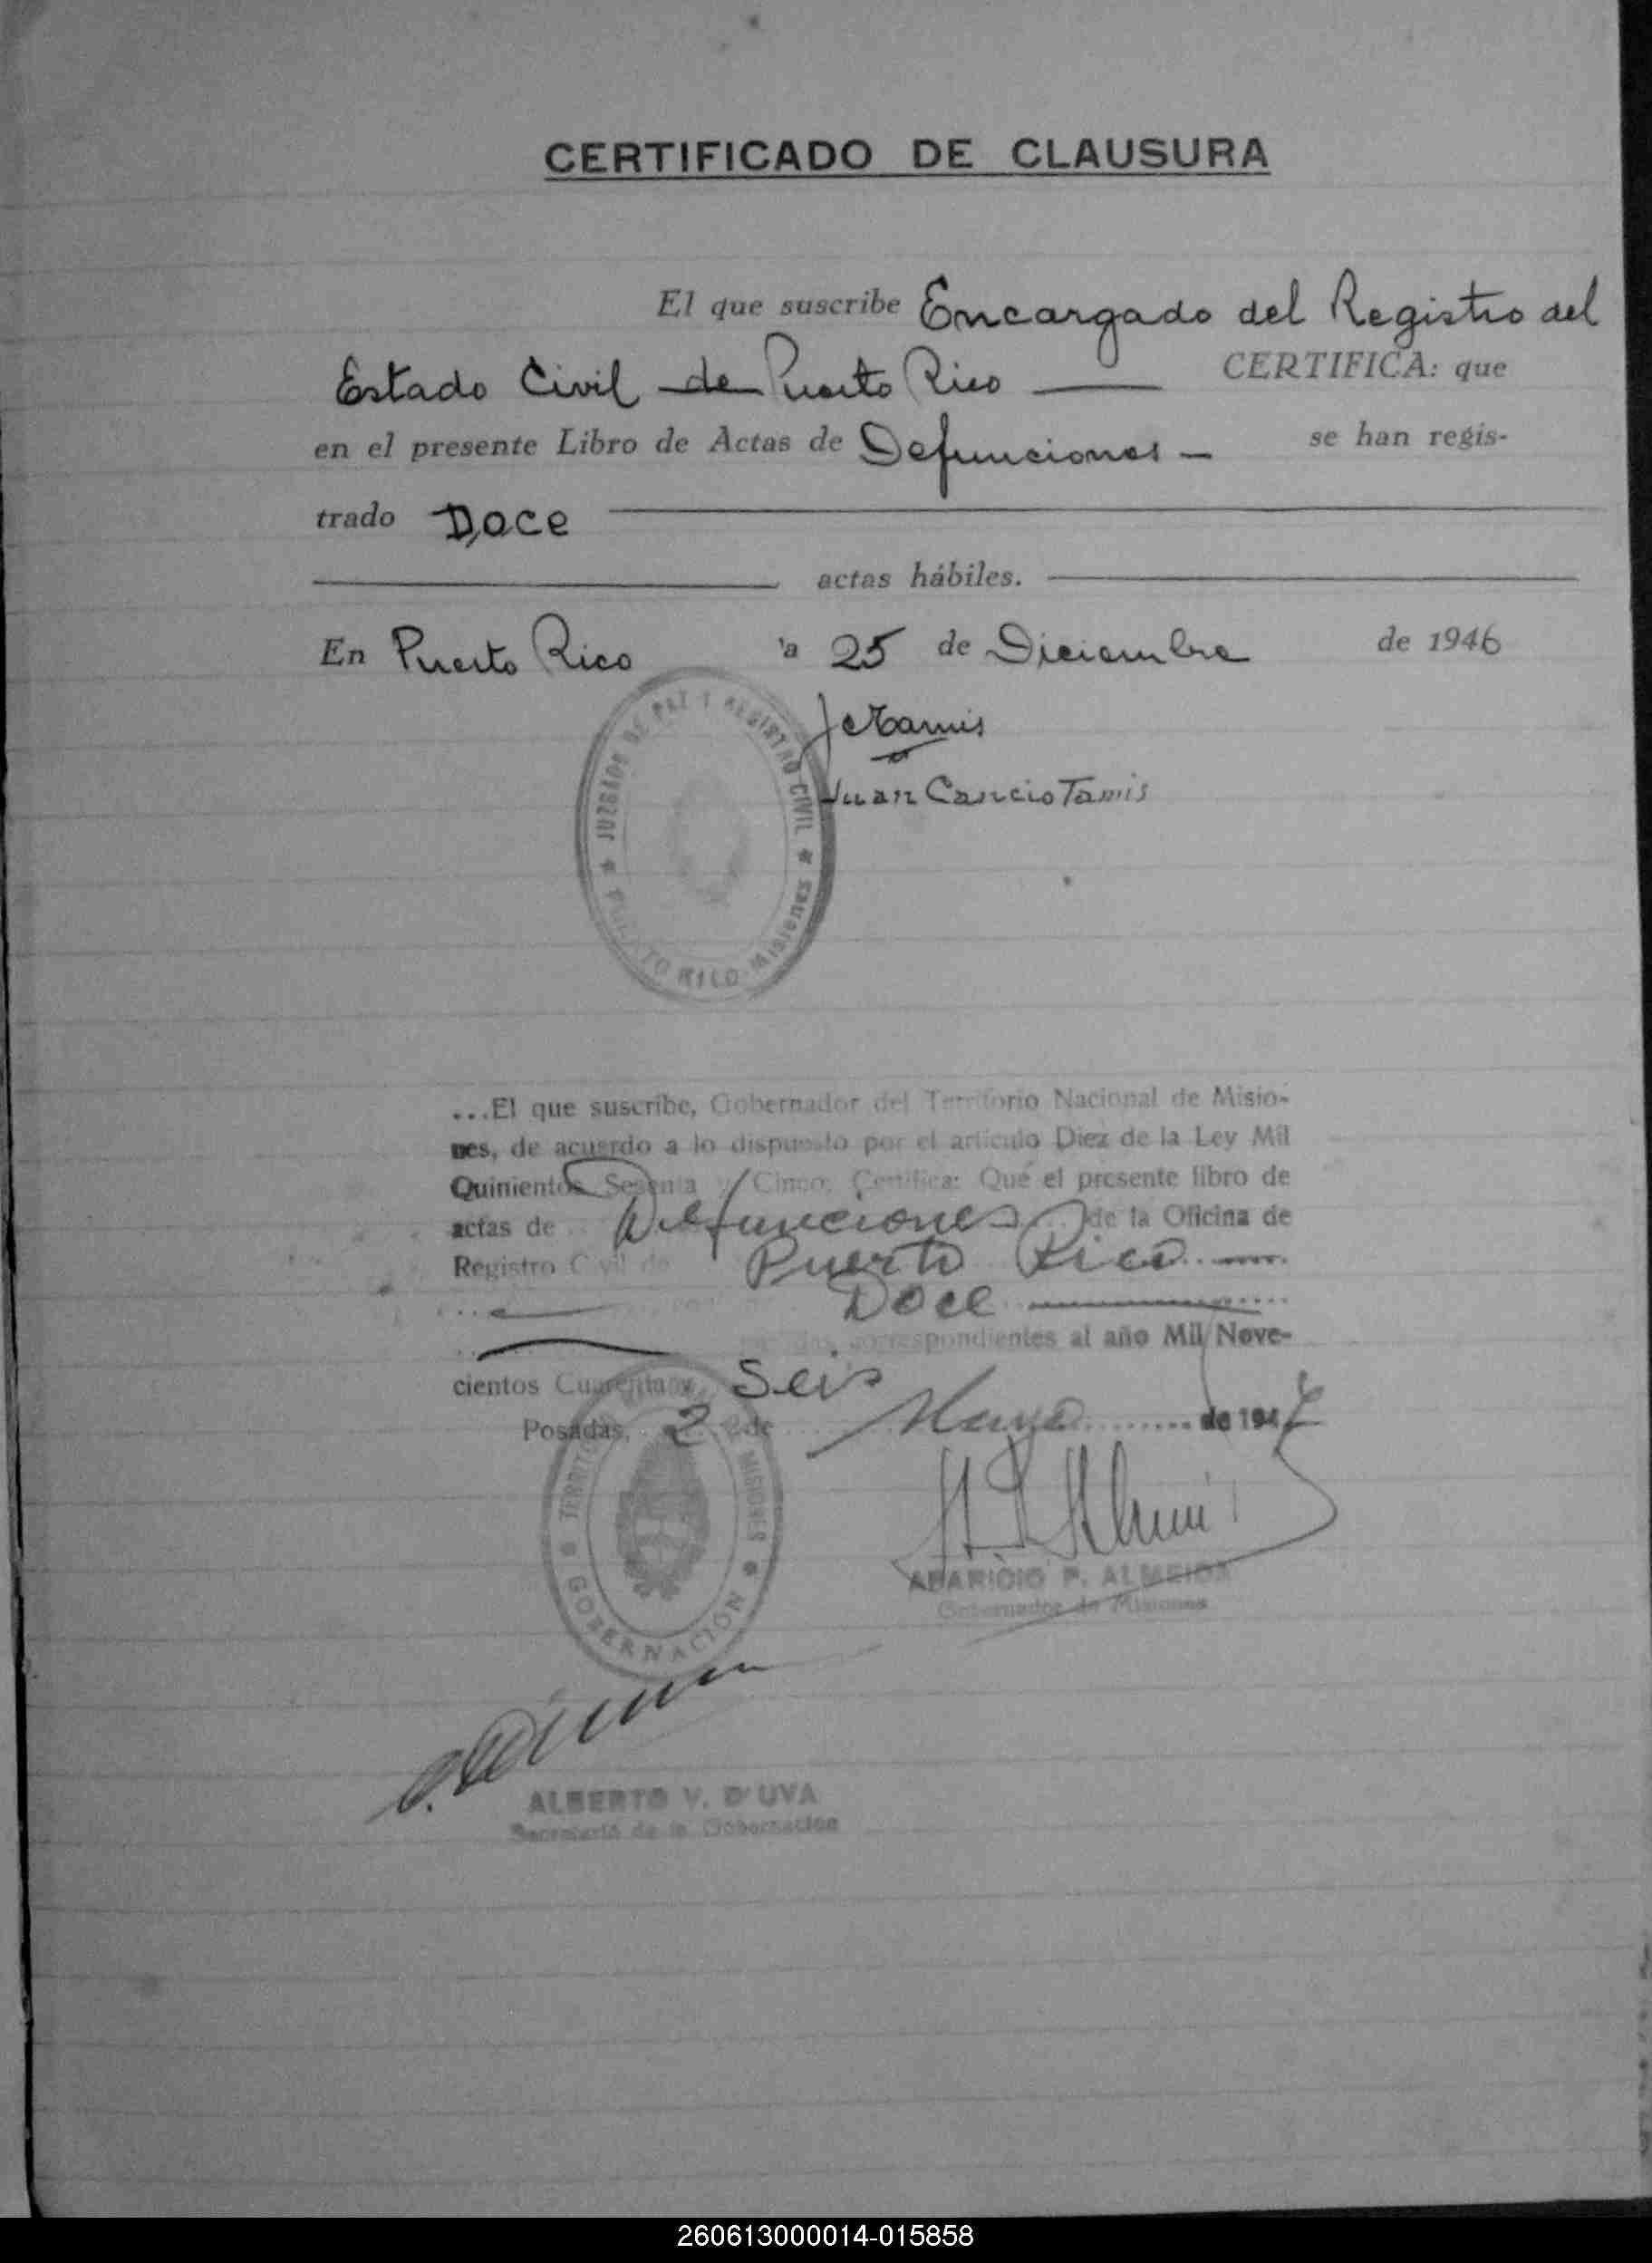 CERTIFICADO DE CLAUSURA
El que suscribe Encargado del Registro del
Estado Civil de Puerto Rico CERTIFICA: que
en el presente Libro de Actas de Defunciones se han regis-
trado Doce
actas hábiles.
En Puerto Rico a 25 de Diciembre de 1946
Juan Cancio Tamis
JUZGADO DE PAZ Y REGISTRO CIVIL * PUERTO RICO Misiones *
...El que suscribe, Gobernador del Territorio Nacional de Misio-
nes, de acuerdo a lo dispuesto por el articulo Diez de la Ley Mil
Quinientos Sesenta y Cinco, Certifica: Qué el presente libro de
actas de Defunciones de la Oficina de
Registro Civil de Puerto Rico
Doce
correspondientes al año Mil Nove-
cientos Cuarenta y Seis
Posadas, 2 de Mayo de 1947
TERRITORIO MISIONES * GOBERNACIÓN *
APARICIO P. ALMEIDA
Gobernador de Misiones
ALBERTO V. D'UVA
Secretario de la Gobernacion
260613000014-015858